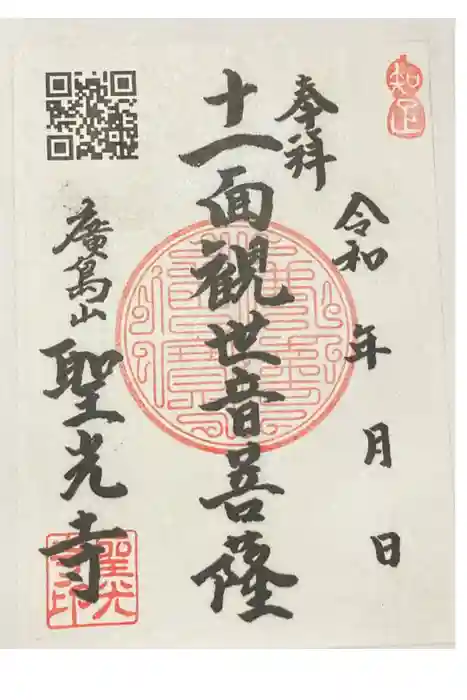 奉拝
令和 年 月 日
十一面観世音菩薩
廣島山
聖光寺
知足
聖光寺印